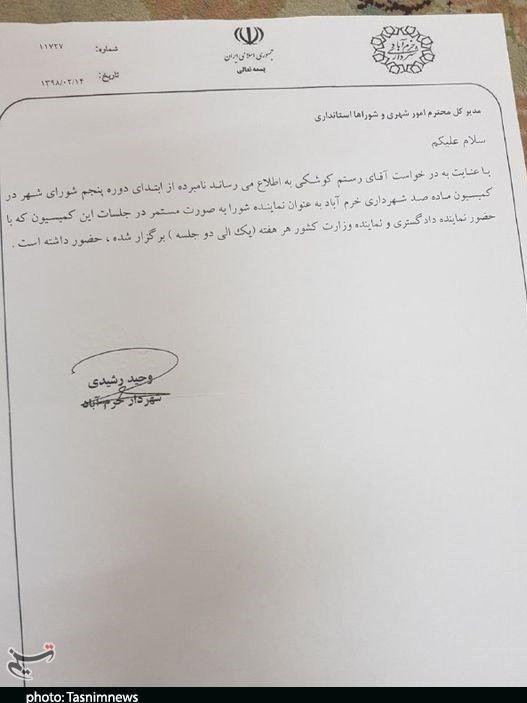 شماره: ۱۱۷۲۷
جمهوری اسلامی ایران
بسمه تعالی
تاریخ: ۱۳۹۸/۰۲/۱۴
شهرداری خرم آباد
مدیر کل محترم امور شهری و شوراها استانداری
سلام علیکم
با عنایت به در خواست آقای رستم کوشکی به اطلاع می رساند نامبرده از ابتدای دوره پنجم شورای شهر در
کمیسیون ماده صد شهرداری خرم آباد به عنوان نماینده شورا به صورت مستمر در جلسات این کمیسیون که با
حضور نماینده دادگستری و نماینده وزارت کشور هر هفته (یک الی دو جلسه ) برگزار شده ، حضور داشته است .
وحید رشیدی
شهردار خرم آباد
تسنیم
photo: Tasnimnews